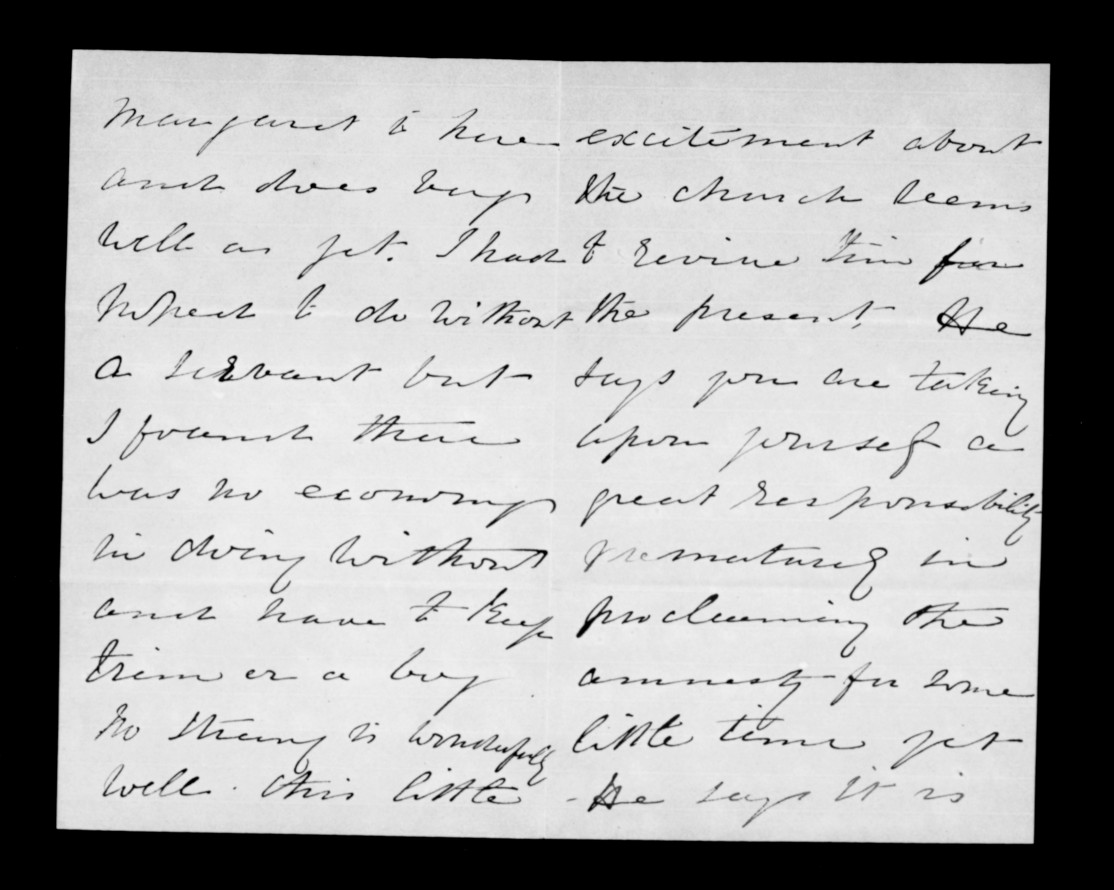 Margaret is here
and does very
well as yet. I had
hoped to do without
a servant but
I found there
was no economy
in doing without
and have to keep
him or a boy
Mr Strang is wonderfully
well. this little
excitement about
the church seems
to revive him for
the present. He
says you are taking
upon yourself a
great responsibility
prematurely in
proclaiming the
amnesty for some
little time yet
- He says it is